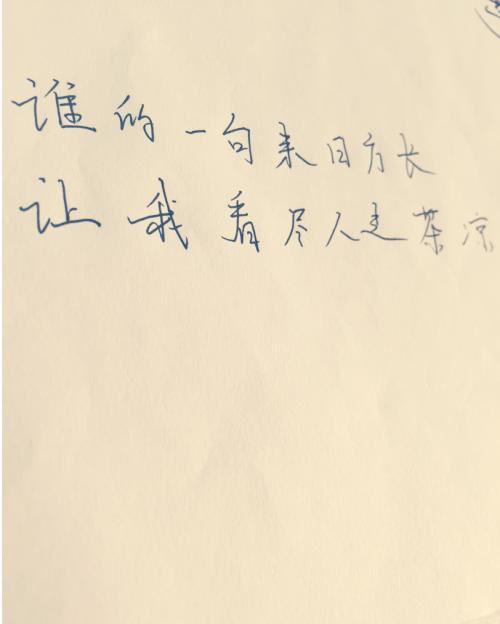 谁的一句来日方长
让我看尽人走茶凉